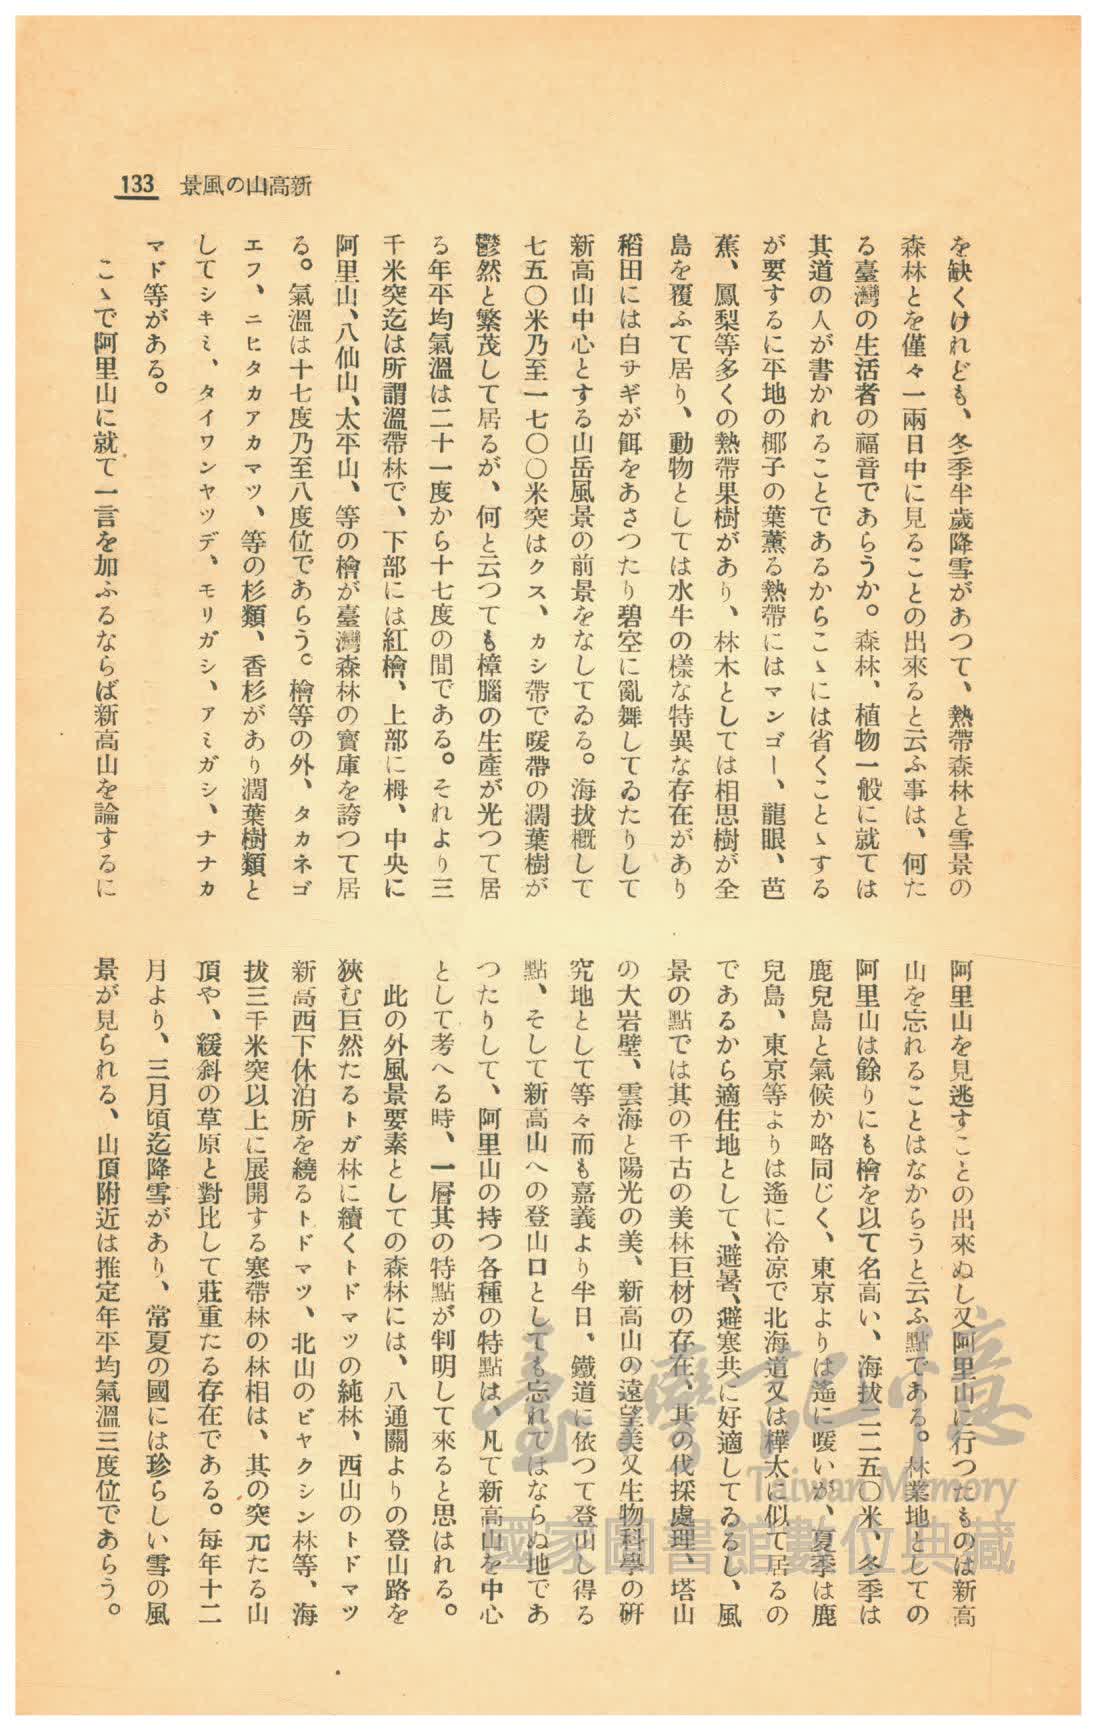 133 景風の山高新
を缺くけれども、冬季半歲降雪があつて、熱帶森林と雪景の
森林とを僅々一兩日中に見ることの出來ると云ふ事は、何た
る臺灣の生活者の福音であらうか。森林、植物一般に就ては
其道の人が書かれることであるからこゝには省くことゝする
が要するに平地の椰子の葉薰る熱帶にはマンゴー、龍眼、芭
蕉、鳳梨等多くの熱帶果樹があり、林木としては相思樹が全
島を覆ふて居り、動物としては水牛の樣な特異な存在があり
稻田には白サギが餌をあさつたり碧空に亂舞してゐたりして
新高山中心とする山岳風景の前景をなしてゐる。海拔槪して
七五〇米乃至一七〇〇米突はクス、カシ帶で暖帶の濶葉樹が
鬱然と繁茂して居るが、何と云つても樟腦の生產が光つて居
る年平均氣溫は二十一度から十七度の間である。それより三
千米突迄は所謂溫帶林で、下部には紅檜、上部に栂、中央に
阿里山、八仙山、太平山、等の檜が臺灣森林の寶庫を誇つて居
る。氣溫は十七度乃至八度位であらう。檜等の外、タカネゴ
エフ、ニヒタカアカマツ、等の杉類、香杉があり濶葉樹類と
してシキミ、タイワンヤツデ、モリガシ、アミガシ、ナナカ
マド等がある。
こゝで阿里山に就て一言を加ふるならば新高山を論するに
阿里山を見逃すことの出來ぬし又阿里山に行つたものは新高
山を忘れることはなからうと云ふ點である。林業地としての
阿里山は餘りにも檜を以て名高い、海拔二二五〇米、冬季は
鹿兒島と氣候か略同じく、東京よりは遙に暖いが、夏季は鹿
兒島、東京等よりは遙に冷凉で北海道又は樺太に似て居るの
であるから適住地として、避暑、避寒共に好適してゐるし、風
景の點では其の千古の美林巨材の存在、其の伐採處理、塔山
の大岩壁、雲海と陽光の美、新高山の遠望美又生物科學の硏
究地として等々而も嘉義より半日、鐵道に依つて登山し得る
點、そして新高山への登山口としても忘れてはならぬ地であ
つたりして、阿里山の持つ各種の特點は、凡て新高山を中心
として考へる時、一層其の特點が判明して來ると思はれる。
此の外風景要素としての森林には、八通關よりの登山路を
狹む巨然たるトガ林に續くトドマツの純林、西山のトドマツ
新高西下休泊所を繞るトドマツ、北山のビヤクシン林等、海
拔三千米突以上に展開する寒帶林の林相は、其の突兀たる山
頂や、緩斜の草原と對比して莊重たる存在である。每年十二
月より、三月頃迄降雪があり、常夏の國には珍らしい雪の風
景が見られる、山頂附近は推定年平均氣溫三度位であらう。
臺灣記憶
Taiwan Memory
國家圖書館數位典藏